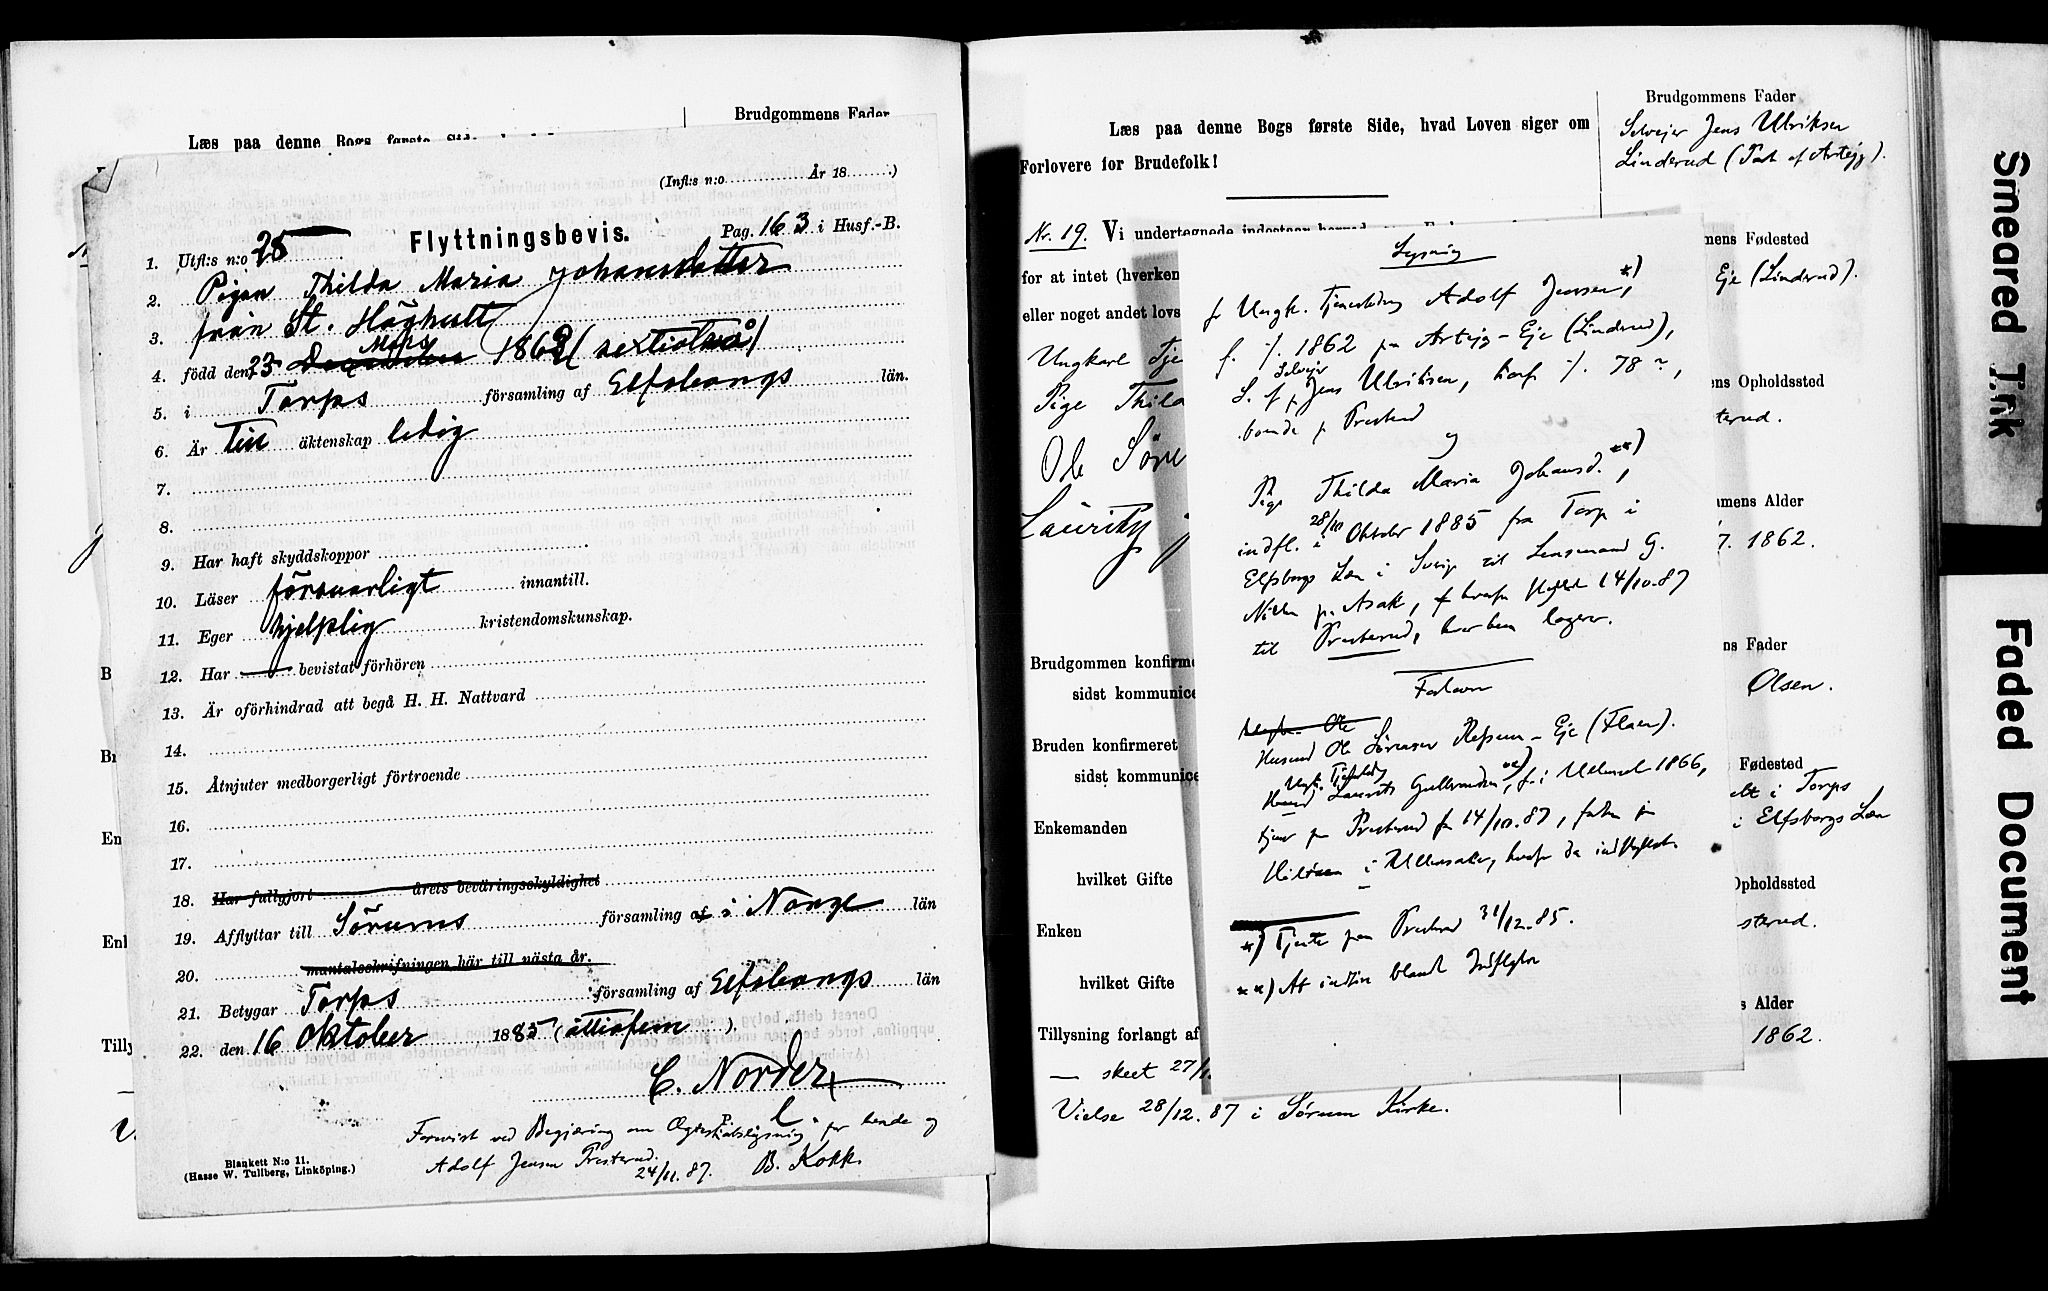 Brudgommens Fader
Læs paa denne Bogs første Side
(Infl:s n:o År 18 )
Flyttningsbevis.
Pag. 163 i Husf.-B.
1. Utfl:s n:o 25
2. Pigan Thilda Maria Johansdotter
3. från St. Höghult
4. född den 23 Mars 1862 (sextiotvå)
5. i Torps församling af Elfsborgs län.
6. Är till äktenskap ledig
7.
8.
9. Har haft skyddskoppor
10. Läser försvarligt innantill.
11. Eger hjelplig kristendomskunskap.
12. Har bevistat förhören
13. Är oförhindrad att begå H. H. Nattvard
14.
15. Åtnjuter medborgerligt förtroende
16.
17.
18. Har fullgjort årets beväringsskyldighet
19. Afflyttar till Sörums församling af i Norge län
20. mantalsskrifningen här till nästa år.
21. Betygar Torps församling af Elfsborgs län
22. den 16 Oktober 1885 (åttiofem ).
C. Norder
Forevist ved Begjæring om Ægteskabslysning for hende og
Adolf Jensen Presterud.
24/11.87. B. Kokk.
Blankett N:o 11.
(Hasse W. Tullberg, Linköping.)
Brudgommens Fader
Selvejer Jens Ulriksen
Linderud (Part af Arteig).
Læs paa denne Bogs første Side, hvad Loven siger om
Forlovere for Brudefolk!
Nr. 19. Vi undertegnede indestaar herved
for at intet (hverken
eller noget andet lovs
Ungkarl Tje
Pige Thild
Ole Söre
Lauritz
Brudgommen konfirme
sidst kommunice
Bruden konfirmeret
sidst kommunice
Enkemanden
hvilket Gifte
Enken
hvilket Gifte
Tillysning forlangt af
— skeet 27/1
Vielse 28/12.87 i Sørum Kirke.
Lysning
f Ungk. Tjenestedrg Adolf Jensen, *)
f. 1862 paa Arteig-Eje (Linderud),
S. af Selvejer Jens Ulriksen, konf 78,
boende p Presterud
og
Pige Thilda Maria Johansd. **),
indfl. i 28/10 Oktober 1885 fra Torp i
Elfsborgs Len i Sverig til Lensmand G.
Nilsen paa Asak, hvorfra flyttet 14/10.87
til Presterud, hvor hun logerer.
Forlovere
Ole
Husmd Ole Sørensen Refsum-Eje (Flaen).
Ungk. Tjenestedrg Laurits Gulbrandsen **), f. i Ullensak 1866,
tjener paa Presterud fra 14/10.87, født paa
i Ullensaker, hvorfra da indflyttet.
*) Tjente paa Presterud 31/12.85.
**) At indføre blandt Indflyttere
mens Fødested
Eje (Linderud).
ens Opholdssted
terud.
mmens Alder
7. 1862.
ns Fader
Olsen.
Fødested
lt i Torps
i Elfsborgs Len
Opholdssted
sterud.
s Alder
1862.
Smeared Ink
Faded Document